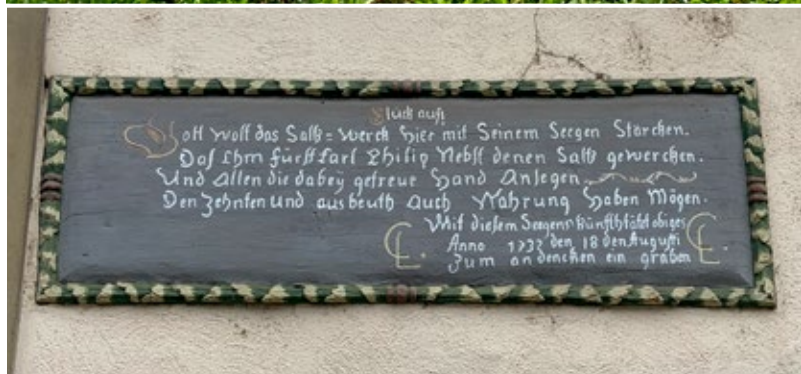 Glück auf!
Gott woll das Saltz=werck hier mit Seinem Seegen Stärcken.
Daß Ihm fürst Carl Philip Nebst denen Saltz gewercken.
Und Allen die dabeÿ getreue Hand Anlegen
Den Zehnten Und ausbeuth Auch Nahrung haben Mögen.
Mit diesem Seegens Wunsch obiges
Anno 1732 den 18 den Augusti
Zum andencken ein graben
CL. CL.